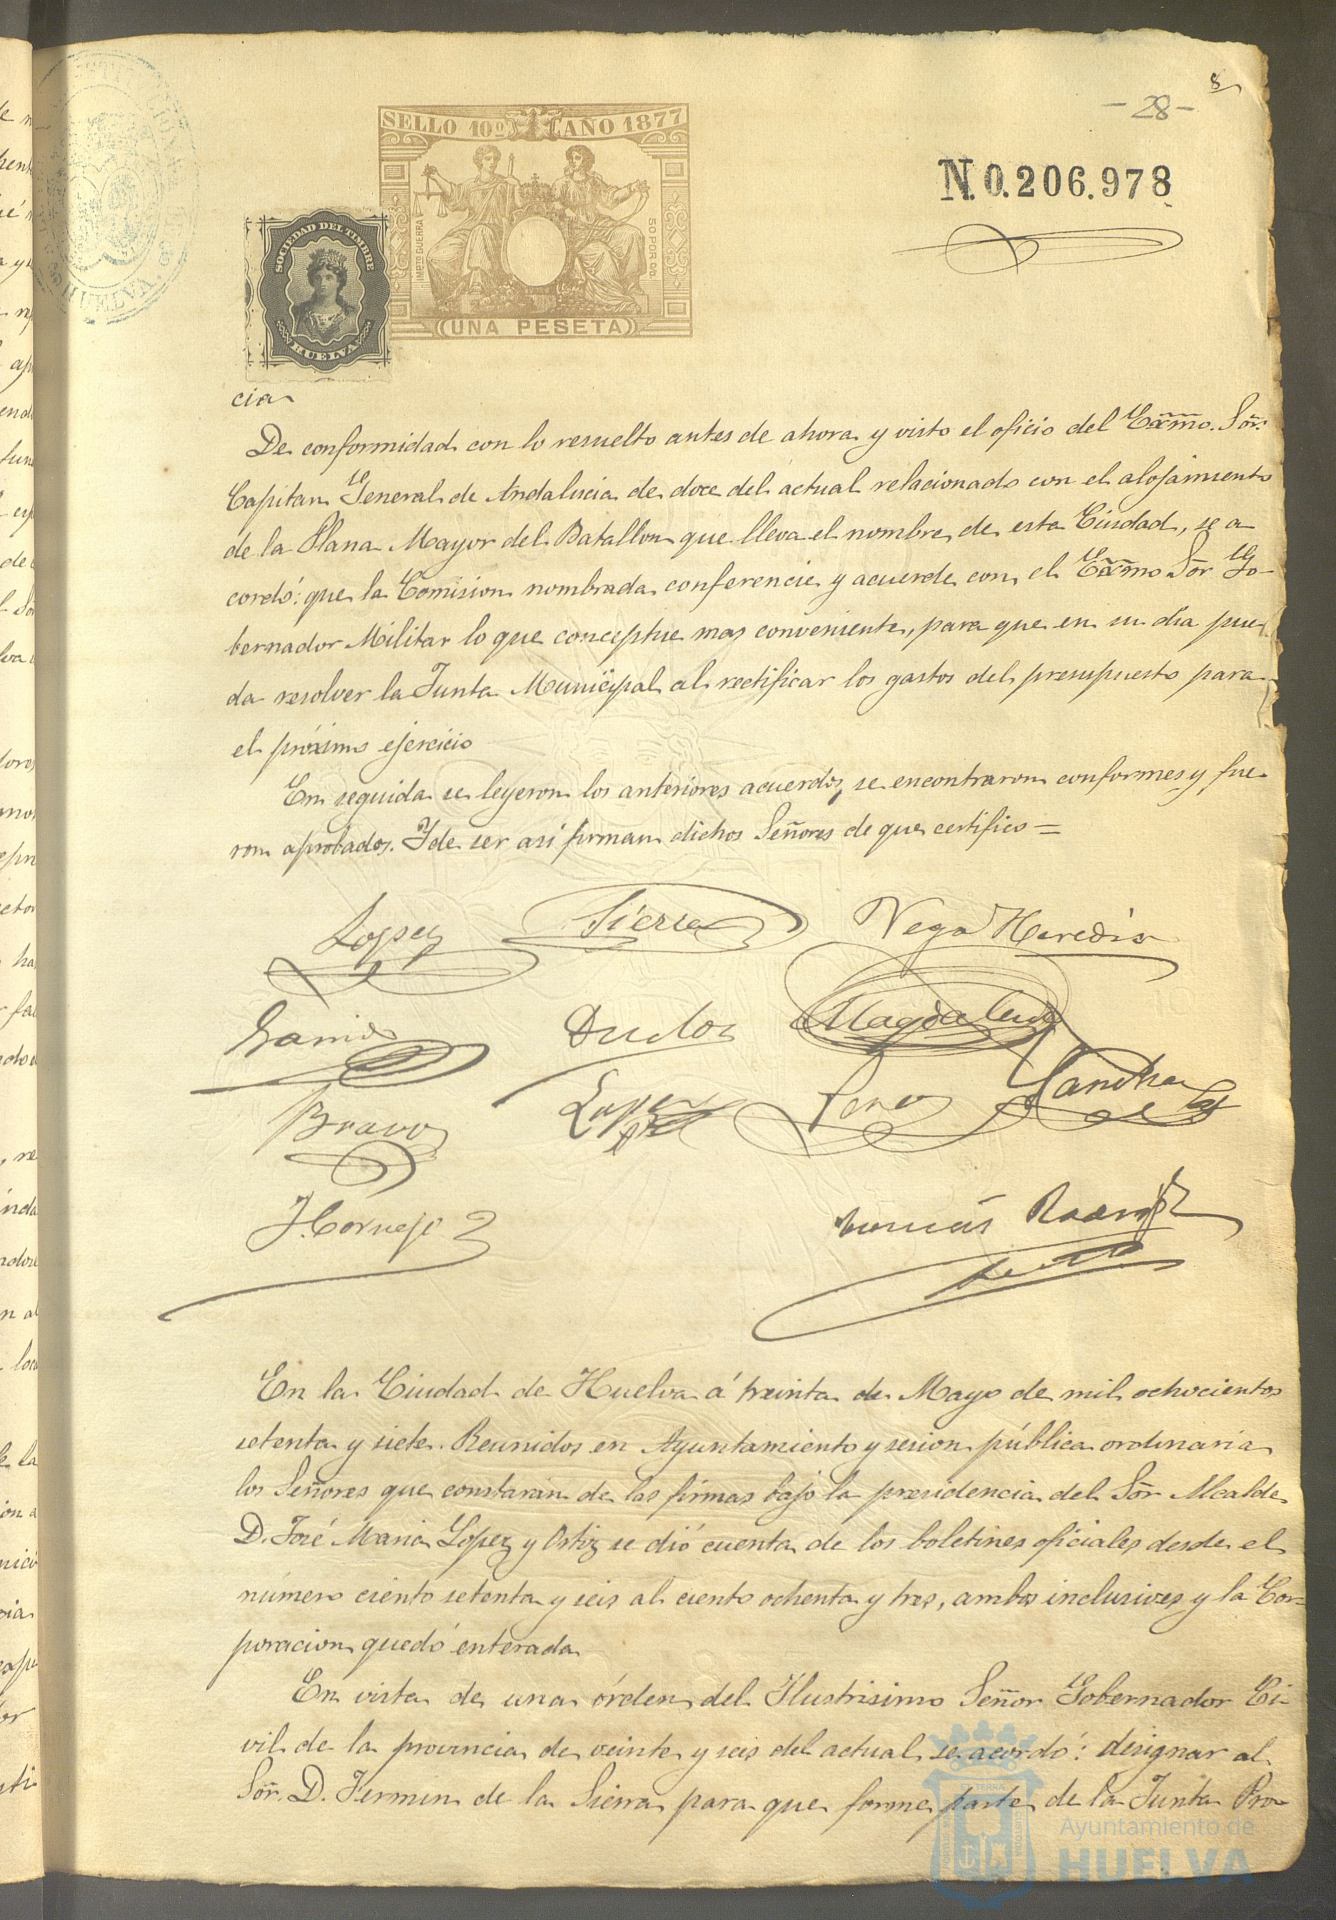 8
-28-
SELLO 10º AÑO 1877
N.0.206.978
IMPTO GUERRA
50 POR 00.
SOCIEDAD DEL TIMBRE
HUELVA
(UNA PESETA)
HUELVA
cia
De conformidad con lo resuelto antes de ahora y visto el oficio del Exmo. Sor.
Capitan General de Andalucia de doce del actual relacionado con el alojamiento
de la Plana Mayor del Batallon que lleva el nombre de esta Ciudad, se a
cordó: que la Comision nombrada conferencie y acuerde con el Exmo Sor Go-
bernador Militar lo que conceptue mas conveniente, para que en su dia pue
da resolver la Junta Municipal al rectificar los gastos del presupuesto para
el próximo ejercicio
En seguida se leyeron los anteriores acuerdos, se encontraron conformes y fue
ron aprobados. Y de ser asi firman dichos Señores de que certifico=
Lopez Sierra Vega Heredia
Duclos Magdalena
Bravo Lopez Sanchez
J. Cornejo Tomás
En la Ciudad de Huelva á treinta de Mayo de mil ochocientos
setenta y siete. Reunidos en Ayuntamiento y sesion pública ordinaria
los Señores que constarán de las firmas bajo la presidencia del Sor Alcalde
D. José Maria Lopez y Ortiz se dió cuenta de los boletines oficiales desde el
número ciento setenta y seis al ciento ochenta y tres, ambos inclusives y la Cor=
poracion quedó enterada
En vista de una órden del Ilustrisimo Señor Gobernador Ci-
vil de la provincia de veinte y seis del actual se acordó: designar al
Sor. D. Fermin de la Sierra para que forme parte de la Junta Pro
Ayuntamiento de
HUELVA